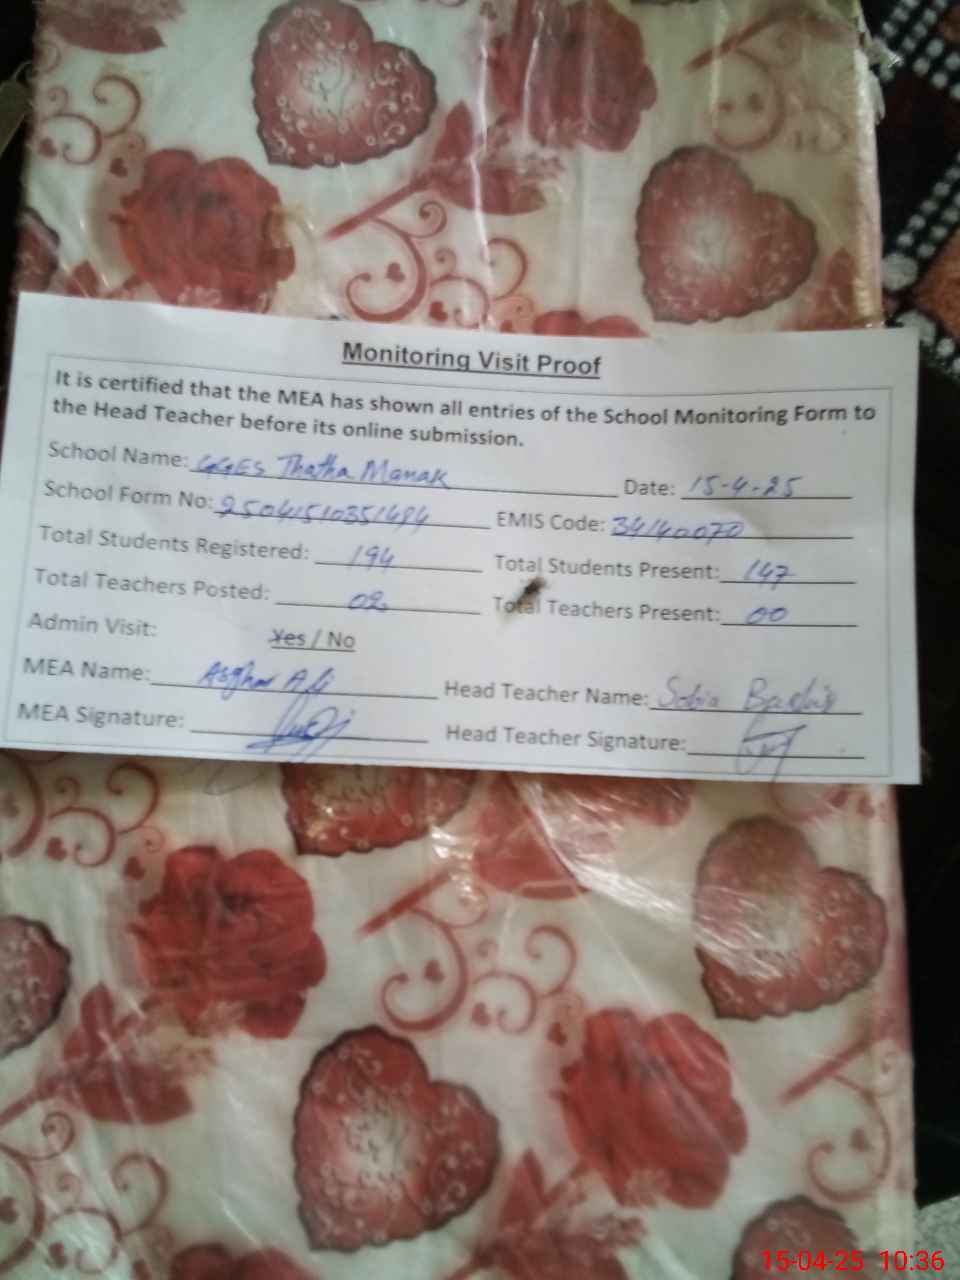 Monitoring Visit Proof
It is certified that the MEA has shown all entries of the School Monitoring Form to
the Head Teacher before its online submission.
School Name: GGES Thatha Manak Date: 15-4-25
School Form No: 25041510351494 EMIS Code: 34140070
Total Students Registered: 194 Total Students Present: 147
Total Teachers Posted: 02 Total Teachers Present: 00
Admin Visit: Yes / No
MEA Name: Asghar Ali Head Teacher Name: Sobia Bashir
MEA Signature: Head Teacher Signature:
15-04-25 10:36